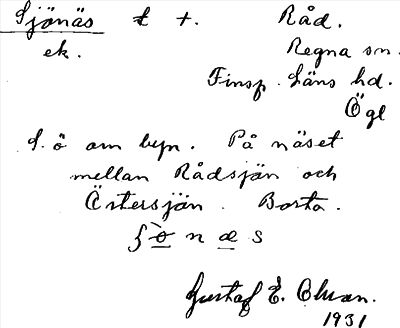 Sjönäs t +. Råd.
ek. Regna sn.
Finsp. Läns hd.
Ögl
S. ö om byn. På näset
mellan Rådsjön och
Östersjön. Borta.
n æ s
Gustaf E. Olsson.
1931